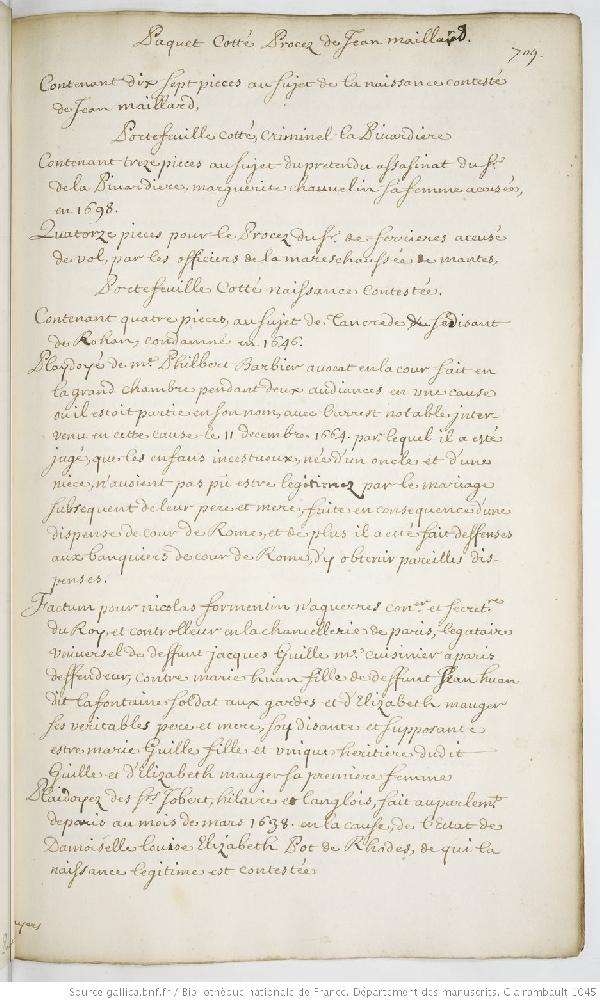 Paquet Cotté Procez de Jean maillard.
709.
Contenant dix sept pieces au sujet de la naissance contesté
de Jean maillard,
Portefeuille cotté, criminel la Pivardiere
Contenant treze pieces au sujet du pretendu assasinat du sr.
de la Pivardiere, marguerite chauvelin sa femme accusée,
en 1698.
Quatorze pieces pour le Procez du sr. de ferrieres accusé
de vol, par les officiers de la mareschaussée de mantes,
Portefeuille Cotté naissance Contestée.
Contenant quatre pieces, au sujet de Tancrede se disant
de Rohan, condamné en 1646.
Playdoyé de me. Philbert Barbier avocat en la cour fait en
la grand chambre pendant deux audiances en une cause
ou il estoit partie en son nom, avec l'arrest notable inter-
venu en cette cause le 11 decembre 1664. par lequel il a esté
jugé, que les enfans incestueux, née d'un oncle et d'une
niece, n'avoient pas pû estre legitimez par le mariage
subsequent de leur pere et mere, faite en consequence d'une
dispense de cour de Rome, et de plus il a esté fait deffenses
aux banquiers de cour de Rome, d'y obtenir pareilles dis-
penses.
Factum pour nicolas formentin n'aguerres coner. et secretre.
du Roy, et controlleur en la chancellerie de paris, legataire
universel de deffunt jacques Guille me. cuisinier a paris
deffendeur, contre marie huan fille de deffunt Jean huan
dit lafontaine soldat aux gardes et d'Elizabeth mauger
ses veritables pere et mere, soy disante et supposante
estre marie Guille fille et unique heritiere dudit
Guille et d'Elizabeth mauger sa premiere femme
Plaidoyez des srs. Jobert, hilaire et langlois, fait au parlemt.
de paris au mois de mars 1638. en la cause, de l'Estat de
Damoiselle louise Elizabeth Pot de Rhodes, de qui la
naissance legitime est contestée
Source gallica.bnf.fr / Bibliothèque nationale de France. Département des manuscrits. Clairambault 1045